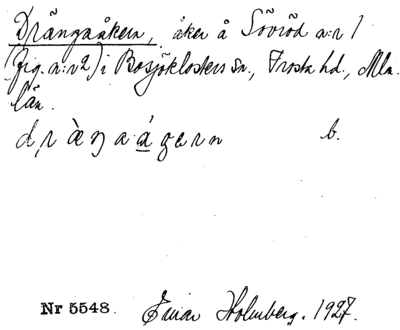 Drängaåkern, åker å Sövröd n:r 1
(fig. n:r 2) i Bosjöklosters sn., Frosta hd., Mlm.
län.
d,rὰŋaágern b.
Nr 5548. Einar Holmberg. 1927.